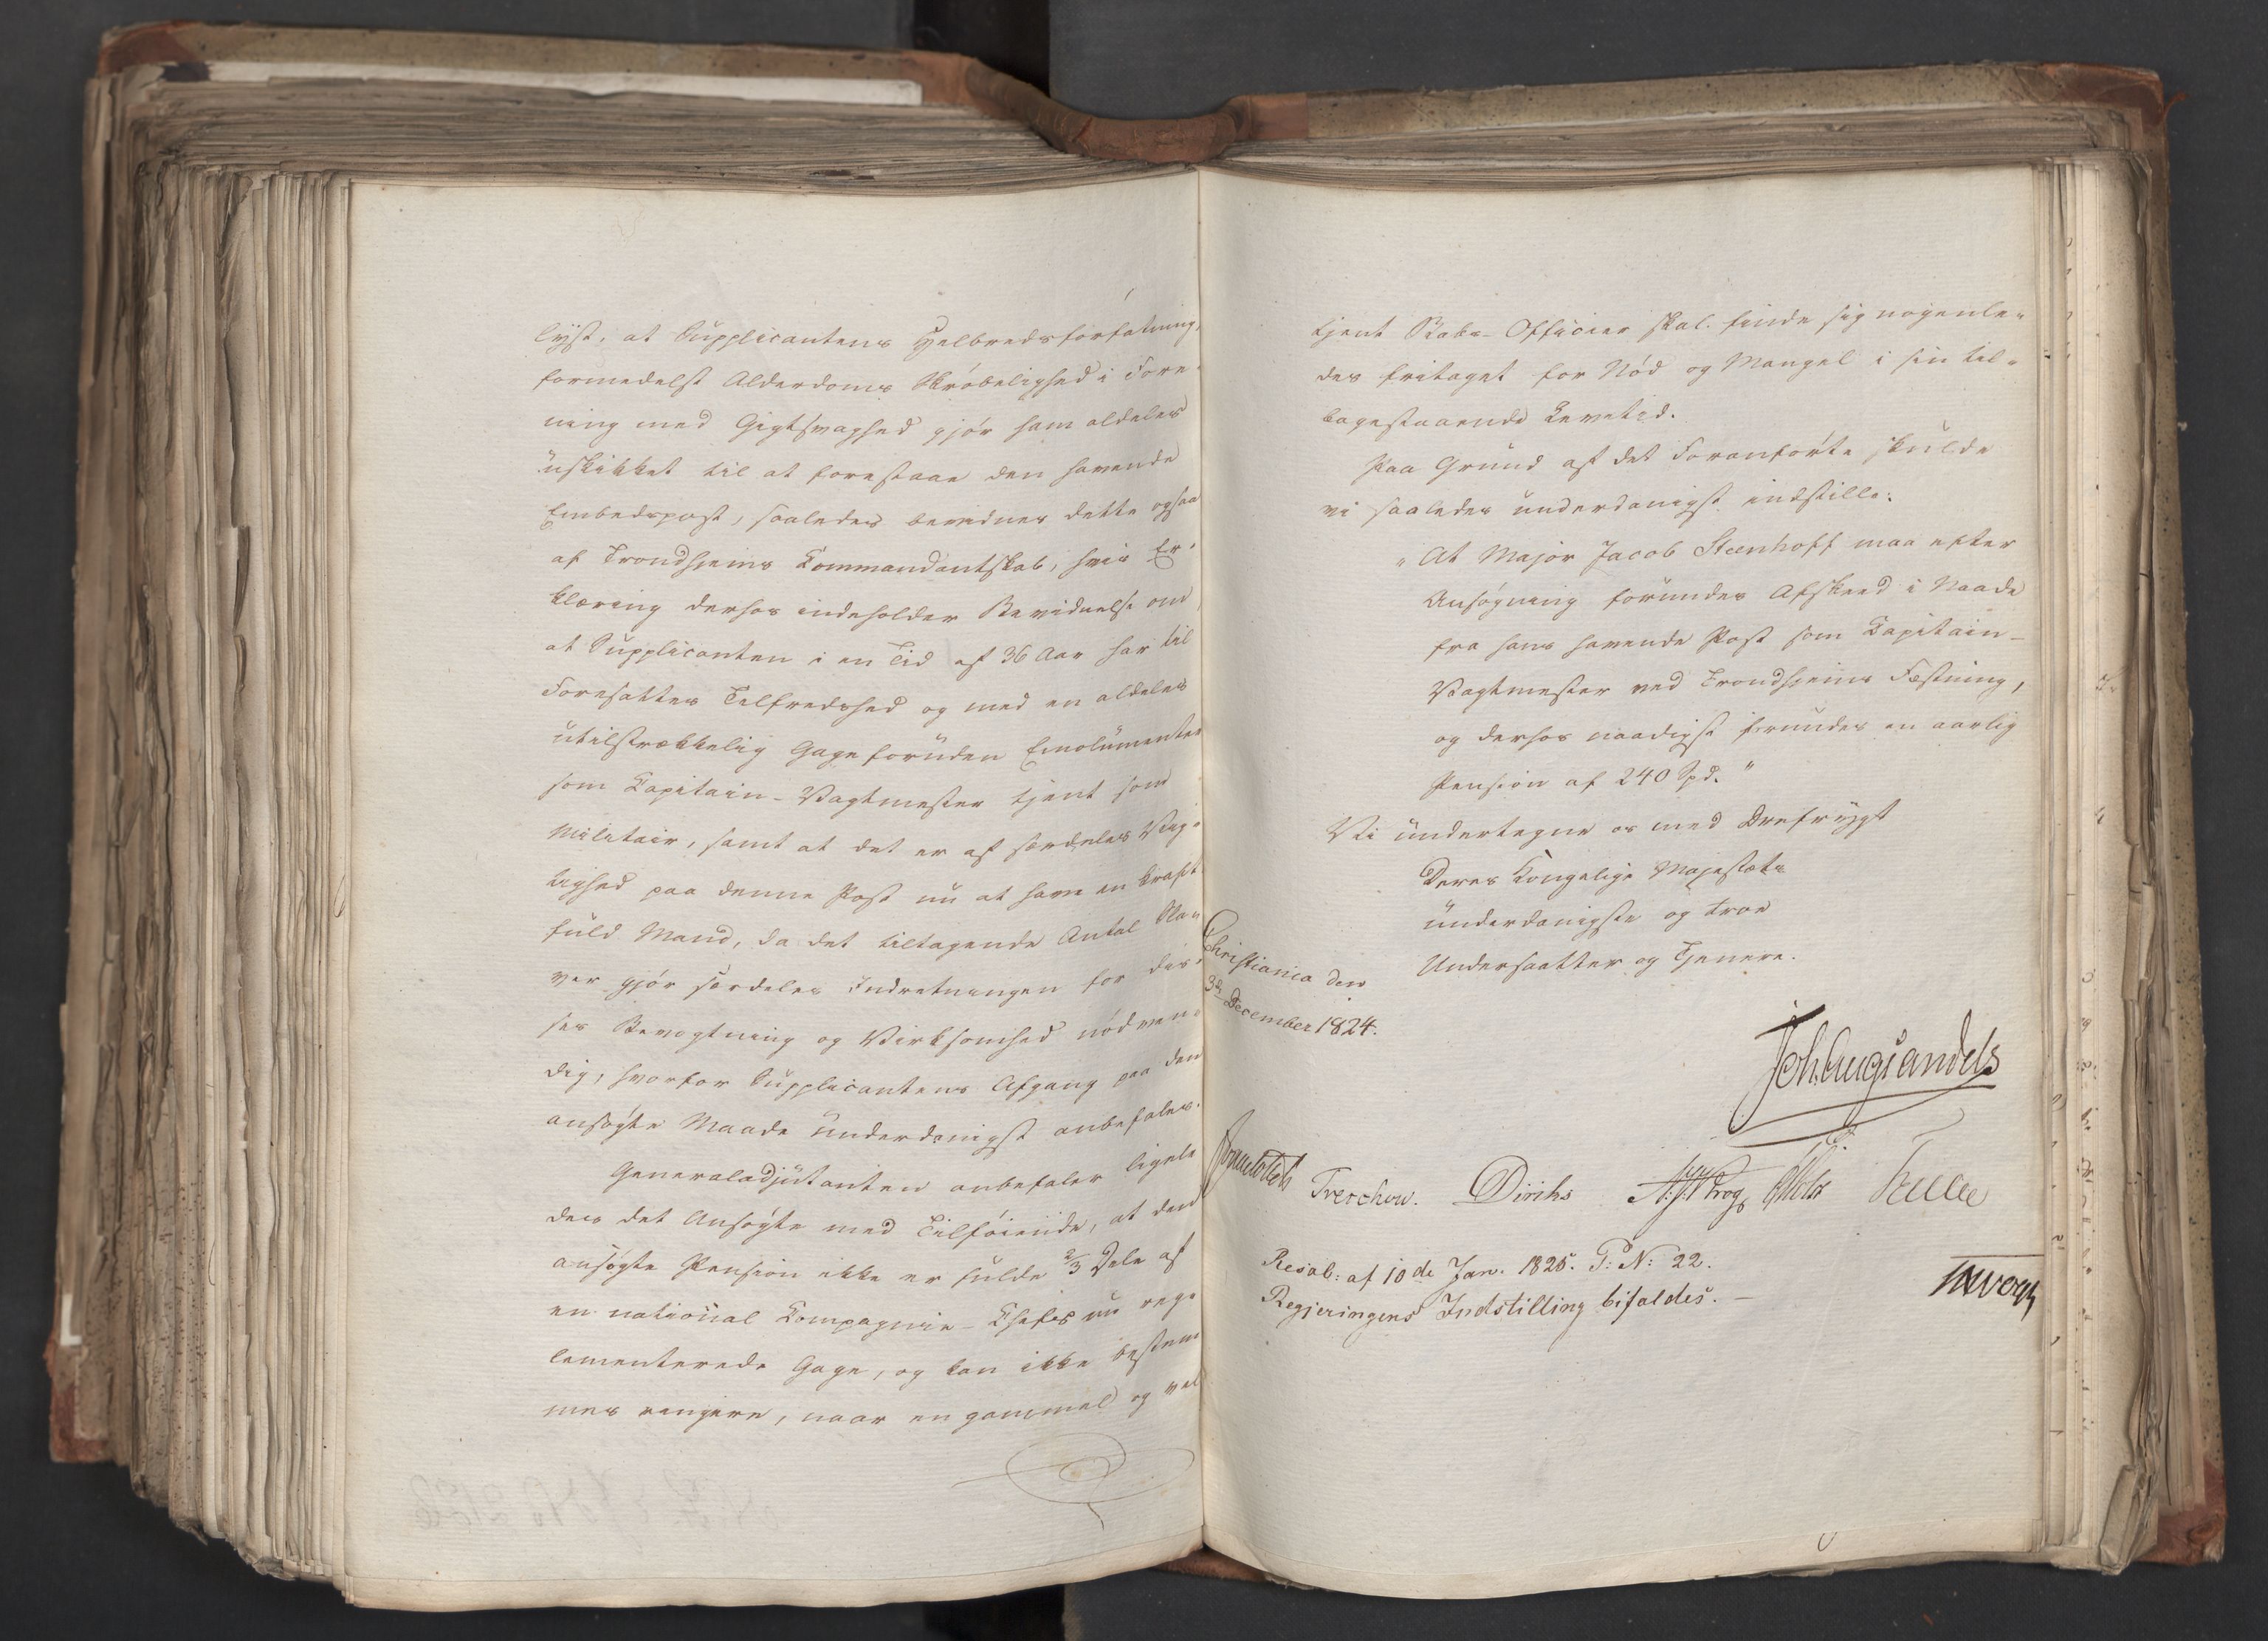 lyst, at Supplicantens Helbredsforfatning,
formedelst Alderdoms Skrøbelighed i Fore-
ning med Gigtsvaghed gjør ham aldeles
uskikket til at forestaae den havende
Embedspost, saaledes bevidnes dette ogsaa
af Trondhjems Commandantskab, hvis Er-
klæring derhos indeholder Bevidnelse om,
at Supplicanten i en Tid af 36 Aar har til
Foresattes Tilfredshed og med en aldeles
utilstrækkelig Gage foruden Emolumenter
som Capitain-Vagtmester tjent som
Militair, samt at det er af særdeles Vig-
tighed paa denne Post nu at have en kraft
fuld Mand, da det tiltagende Antal Sla-
ver gjør særdeles Indretningen for dis-
ses Bevogtning og Virksomhed nødven-
dig, hvorfor Supplicantens Afgang paa den
ansøgte Maade underdanigst anbefales.
Generaladjutanten anbefaler ligele
des det Ansøgte med Tilføiende, at den
ansøgte Pension ikke er fulde 2/3 Dele af
en national Compagnie-Chefs nu reg-
lementerede Gage, og kan ikke bestem
mes ringere, naar en gammel og vel
tjent Stabs-Officier skal finde sig nogenle-
des fritaget for Nød og Mangel i sin til-
bagestaaende Levetid.
Paa Grund af det Foranførte skulde
vi saaledes underdanigst indstille:
"At Major Jacob Steenhoff maa efter
Ansøgning forundes Afskeed i Naade
fra hans havende Post som Capitain-
Vagtmester ved Trondhjems Fæstning,
og derhos naadigst forundes en aarlig
Pension af 240 Spd."
Vi undertegne os med Ærefrygt
Deres Kongelige Majestæts
underdanigste og troe
Undersaatter og Tjenere.
Christiania den
3de December 1824.
Joh. Aug. Sandels
Sommerhielm Treschow. Diriks Holst
Resol: af 10de Jan. 1825. P: N: 22.
Regjeringens Indstilling bifaldes. —